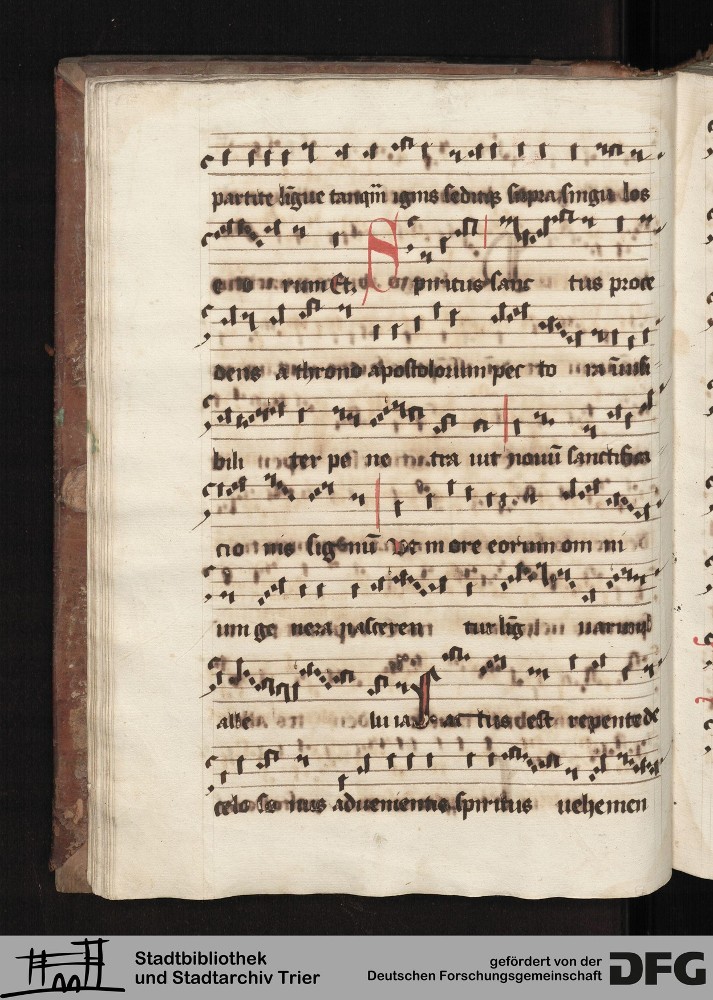 partite lĩgue tanqm̃ ignis seditqꝫ supra singu los
eo rum Et. Spiritus sanc tus proce
dens a throno apostolorum pec to ra ĩuisi
bili ter pe ne tra uit nouũ sanctifica
cio nis signũ Vt in ore eorum om ni
um ge nera nasceren tur lĩg uarum
alle lu ia Fac tus est repente de
celo so nus aduenientis spiritus uehemen
Stadtbibliothek
und Stadtarchiv Trier
gefördert von der
Deutschen Forschungsgemeinschaft
DFG